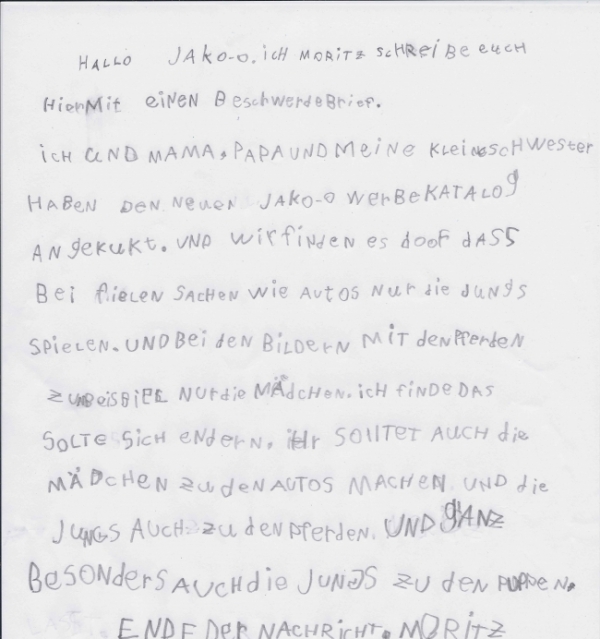 HALLO JAKO-O. ICH MORITZ SCHREIBE EUCH
HierMit eiNeN BeschwerdeBrief.
ICH UND MAMA, PAPA UND MeiNe KLeiNeSCHWester
HABEN DEN NeueN JAKO-O WerBeKATALOg
ANgeKUKT. UND WirfiNdeN es dooF dASS
Bei fieleN SACHeN Wie AUtoS Nur die JUNgS
SPieLeN. UND Bei deN BiLDerN MiT deN Pferden
ZUmBeisBieL NUr die MÄdCHeN. iCH fiNDe DAS
SOLTe SiCH eNderN. iHr SOllTeT AUCH die
MÄDCHeN ZU deN AUTOS MACHeN. UND die
JUNGS AUCH ZU deN Pferden. UND gANZ
BeSONderS AUCH die JUNgS ZU deN PUPPeN.
ENDE Der NACHRiCHT. MORiTZ